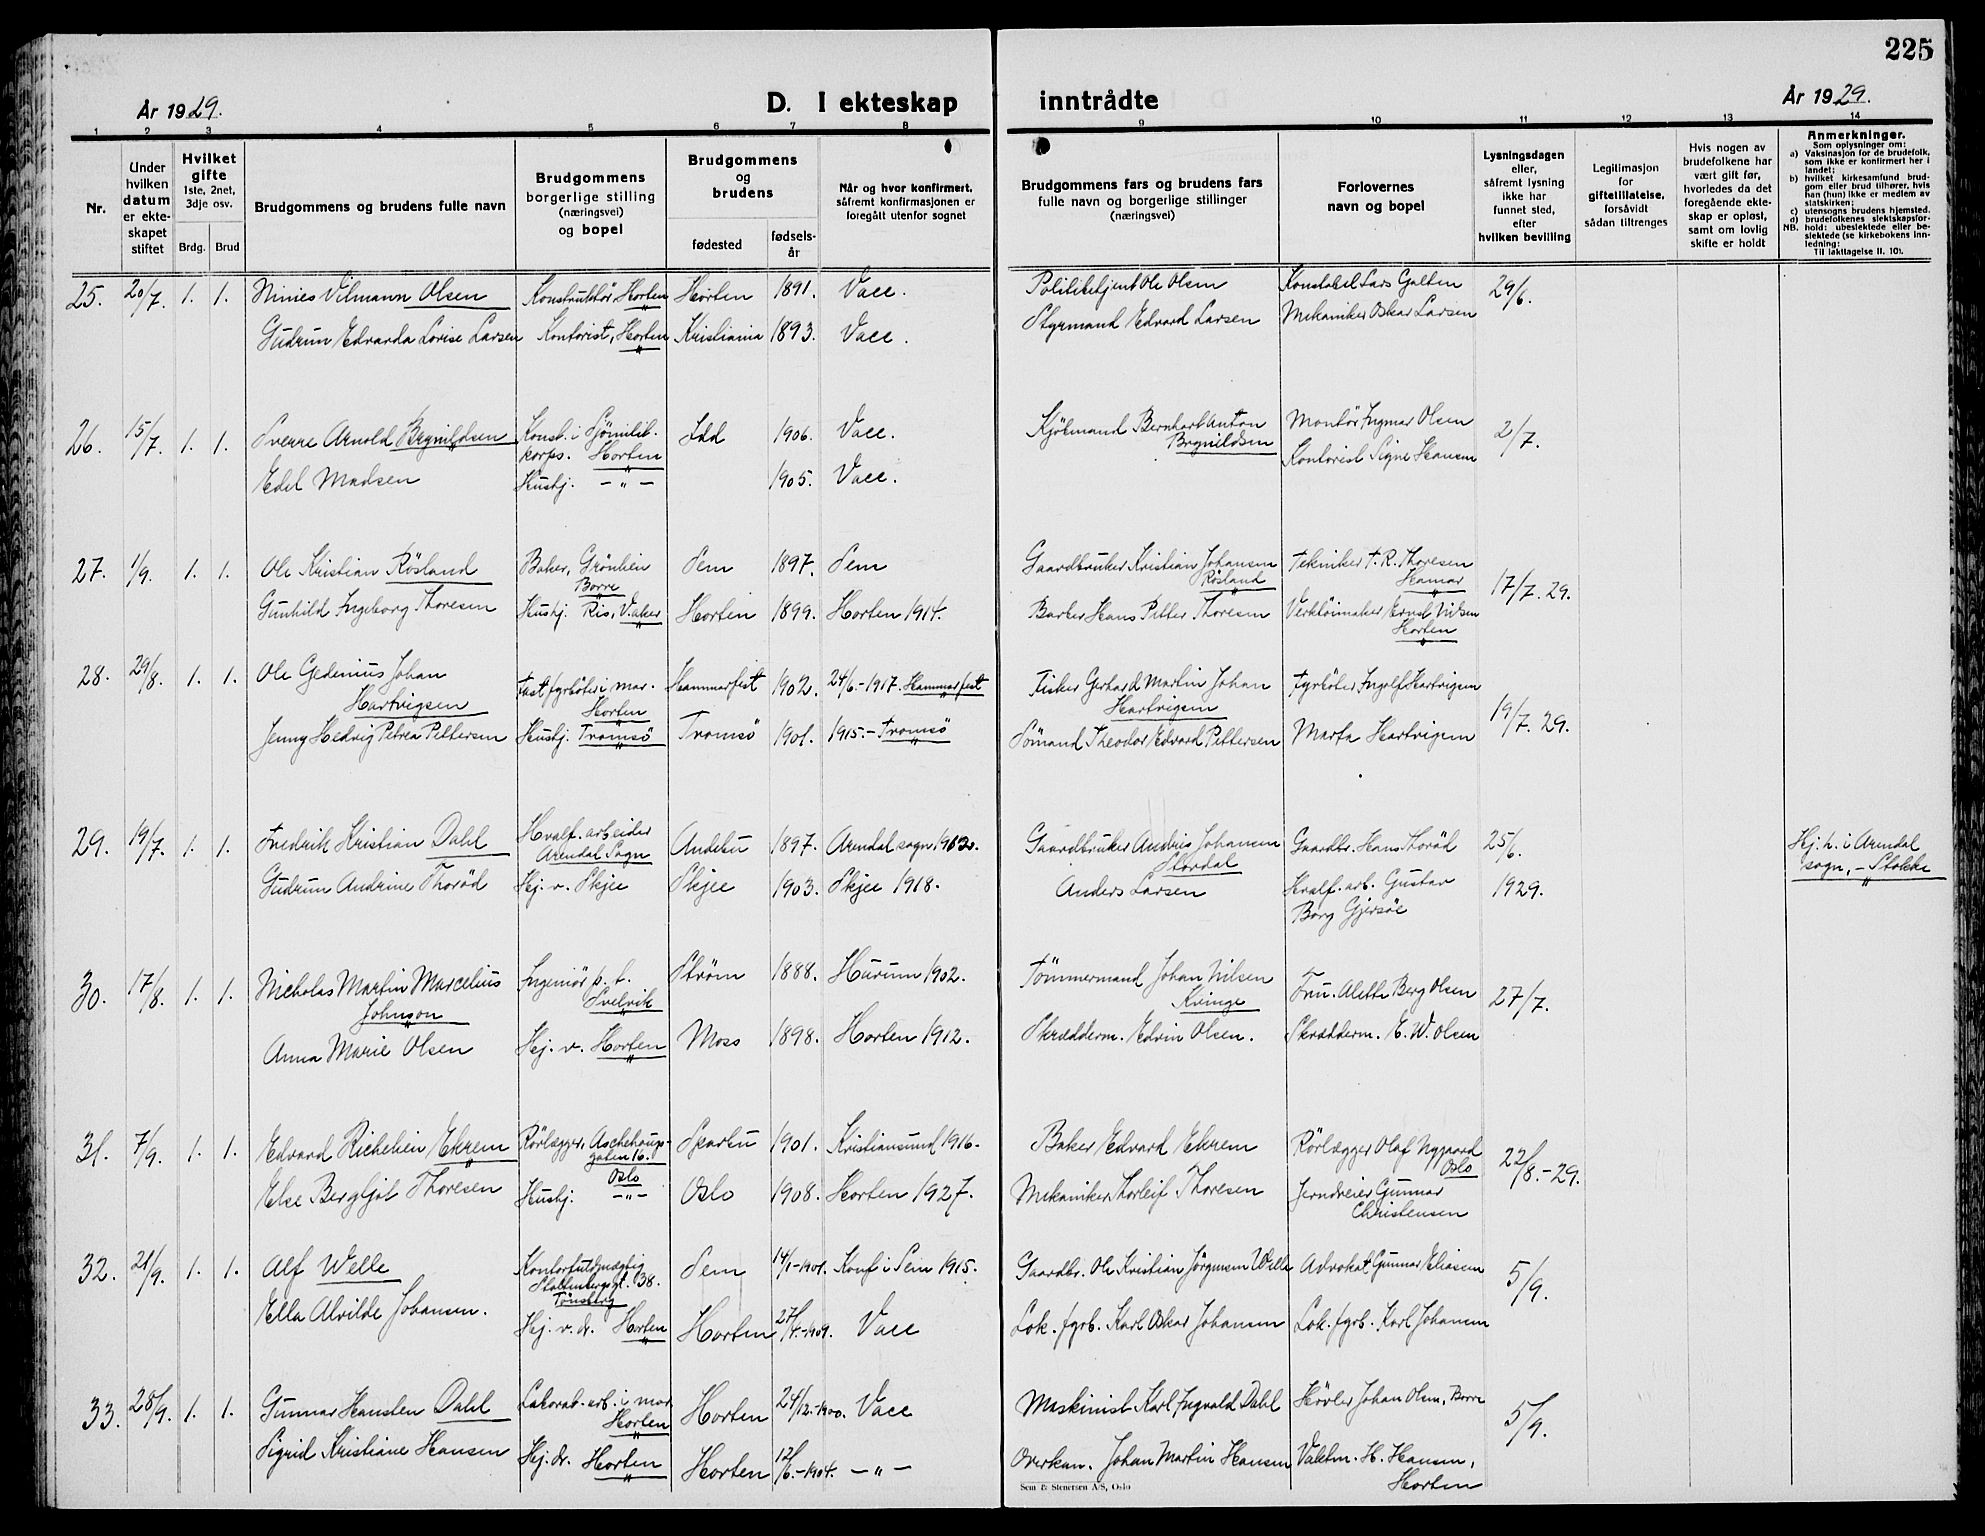 225
År 1929.
D. I ekteskap inntrådte
År 1929.
1 2 3 4 5 6 7 8 9 10 11 12 13 14
Nr.
Under hvilken datum er ekteskapet stiftet
Hvilket gifte
1ste, 2net, 3dje osv.
Brdg. Brud
Brudgommens og brudens fulle navn
Brudgommens borgerlige stilling (næringsvei) og bopel
Brudgommens og brudens
fødested
fødselsår
Når og hvor konfirmert, såfremt konfirmasjonen er foregått utenfor sognet
Brudgommens fars og brudens fars fulle navn og borgerlige stillinger (næringsvei)
Forlovernes navn og bopel
Lysningsdagen eller, såfremt lysning ikke har funnet sted, efter hvilken bevilling
Legitimasjon for giftetillatelse, forsåvidt sådan tiltrenges
Hvis nogen av brudefolkene har vært gift før, hvorledes da det foregående ekteskap er opløst, samt om lovlig skifte er holdt
Anmerkninger.
Som oplysninger om:
a) Vaksinasjon for de brudefolk, som ikke er konfirmert her i landet;
b) hvilket kirkesamfund brudgom eller brud tilhører, hvis han (hun) ikke er medlem av statskirken;
c) utensogns brudens hjemsted.
d) brudefolkenes slektskapsforhold: ubeslektede eller beslektede (se kirkebokens innledning:
NB.
Til iakttagelse II. 10).
25. 20/7. 1. 1. Nimes Vilmann Olsen Konstruktör Horten Horten 1891. Vacc. Politibetjent Ole Olsen Konstabel Lars Galten 29/6.
Gudrun Edvarda Lovise Larsen Kontorist, Horten Kristiania 1893. Vacc. Styrmand Edvard Larsen Mekaniker Oskar Larsen
26. 15/7. 1. 1. Sverre Arnold Brynildsen Konst. i Sjömilit. korps. Horten Idd 1906. Vacc. Kjöbmand Bernhart Anton Brynildsen Montör Ingmar Olsen 2/7.
Edel Madsen Husbj. -"- 1905. Vacc. Kontorist Signe Hansen
27. 1/9. 1. 1. Ole Kristian Røsland Baker, Grönlien Borre Sem 1897. Sem Gaardbruker Kristian Johansen Røsland Tekniker T. R. Thoresen Hamar 17/7. 29.
Gunhild Ingeborg Thoresen Husbj. Ris, V. Aker Horten 1899. Horten 1914. Barber Hans Petter Thoresen Verktöimaker Ernst Nilsen Horten
28. 29/8. 1. 1. Ole Gedenius Johan Hartvigsen Fast fyrböter i mar. Horten Hammerfest 1902. 24/6.-1917. Hammerfest Fisker Gerhard Martin Johan Hartvigsen Fyrböter Ingolf Hartvigsen 19/7. 29.
Jenny Hedvig Petrea Pettersen Husbj. Tromsö Tromsö 1901. 1915.- Tromsö Sömand Theodor Edvard Pettersen Marta Hartvigsen
29. 19/7. 1. 1. Fredrik Kristian Dahl Hvalf. arbeider Arendal Sogn Andebu 1897. Arendal sogn 1912. Gaardbruker Andreas Johansen Stordal Gaardbr. Hans Thorød 25/6. 1929. Hj. h. i Arendal sogn, - Stokke
Gudrun Andrine Thorød Hj. v. Skjee Skjee 1903. Skjee 1918. Anders Larsen Hvalf. arb. Gustav Borg Gjersöe
30. 17/8. 1. 1. Nicholas Martin Marcelius Johnson Ingeniör p. t. Svelvik Strøm 1888. Hurum 1902. Tömmermand Johan Nilsen Kvinge Fru. Alette Berg Olsen 27/7.
Anna Marie Olsen Hj. v. Horten Moss 1898. Horten 1912. Skrædderm. Edvin Olsen. Skrædderm. E. W. Olsen
31. 7/9. 1. 1. Edvard Richelien Ekrem Rörlægger, Aschehougs-gaten 16. Oslo 1901. Kristiansund 1916. Baker Edvard Ekrem Rörlægger Olaf Nygaard Oslo 22/8.-29.
Else Bergljot Thoresen Husbj. -"- Oslo 1908. Horten 1927. Mekaniker Thorleif Thoresen Jerndreier Gunnar Christensen
32. 21/9. 1. 1. Alf Welle Kontorfuldmægtig Stoltenbergsgt. 38. Tönsberg Sem 14/1-1901. Konf i Sem 1915. Gaardbr. Ole Kristian Jörgensen Welle Advokat Gunnar Eliasen 5/9.
Ella Alvilde Johansen. Hj. v. dr. Horten Horten 27/4.-1909. Vacc Lok. fyrb. Karl Oskar Johansen Lok. fyrb. Karl Johansen
33. 28/9. 1. 1. Gunnar Hansten Dahl Laborat. arb. i mar Horten Horten 24/12.-1900. Vacc Maskinist Karl Ingvald Dahl Hövler Johan Olsen, Borre 5/9.
Sigrid Kristiane Hansen Hj. dr. Horten Horten 12/6.-1904. -"- Overkan. Johan Martin Hansen Vaktm. H. Hansen, Horten
Sem & Stenersen A/S, Oslo